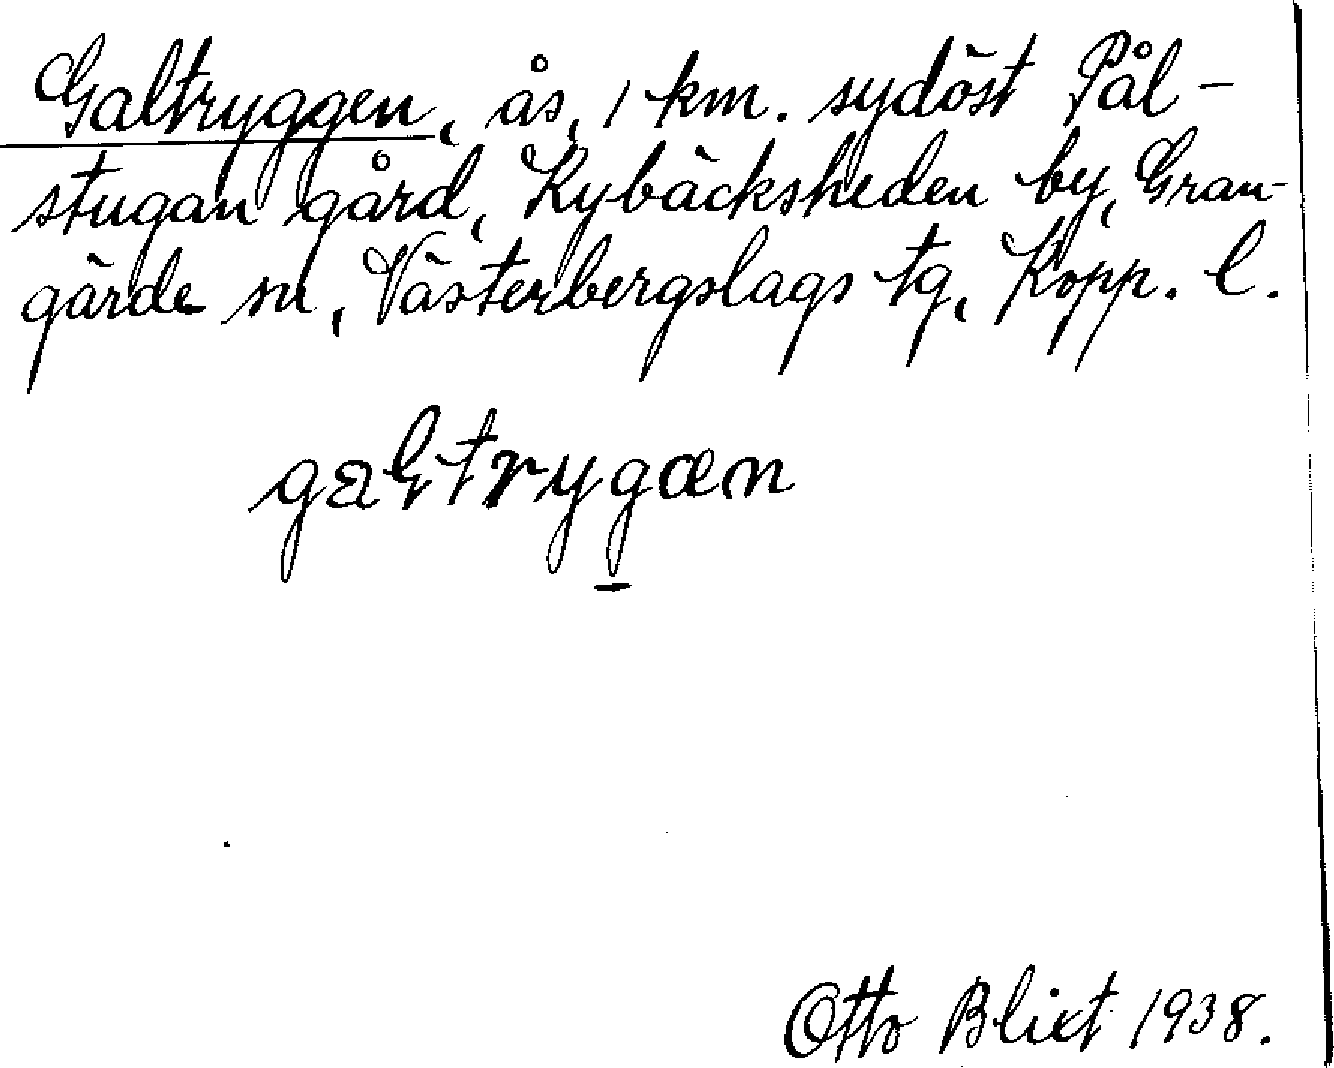 Galtryggen, ås, 1 km. sydöst Pål-
stugan gård, Kybäcksheden by, Gran-
gärde sn, Västerbergslags tg, Kopp. l.
galtrygæn
Otto Blixt 1938.